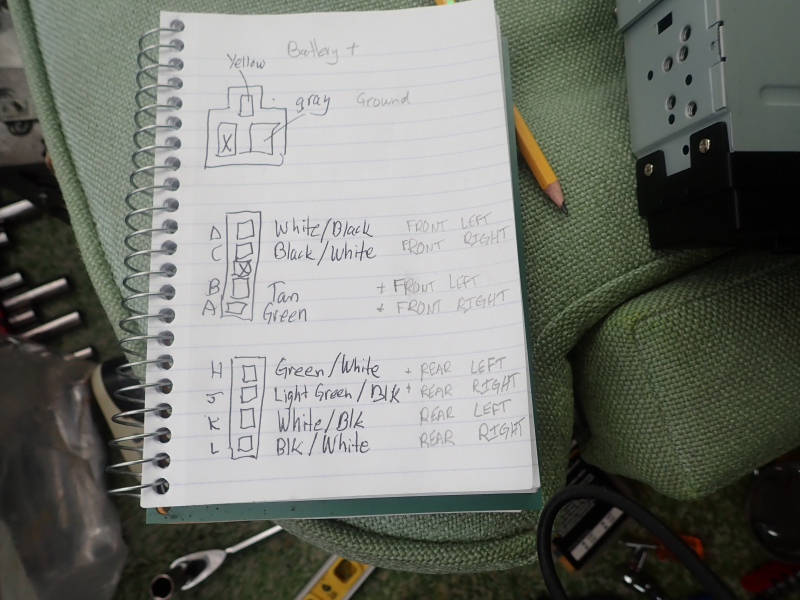 Battery +
Yellow
gray Ground
X
D White/Black FRONT LEFT
C Black/White FRONT RIGHT
X
B Tan + FRONT LEFT
A Green + FRONT RIGHT
H Green/White + REAR LEFT
J Light Green/Blk + REAR RIGHT
K White/Blk REAR LEFT
L Blk/White REAR RIGHT